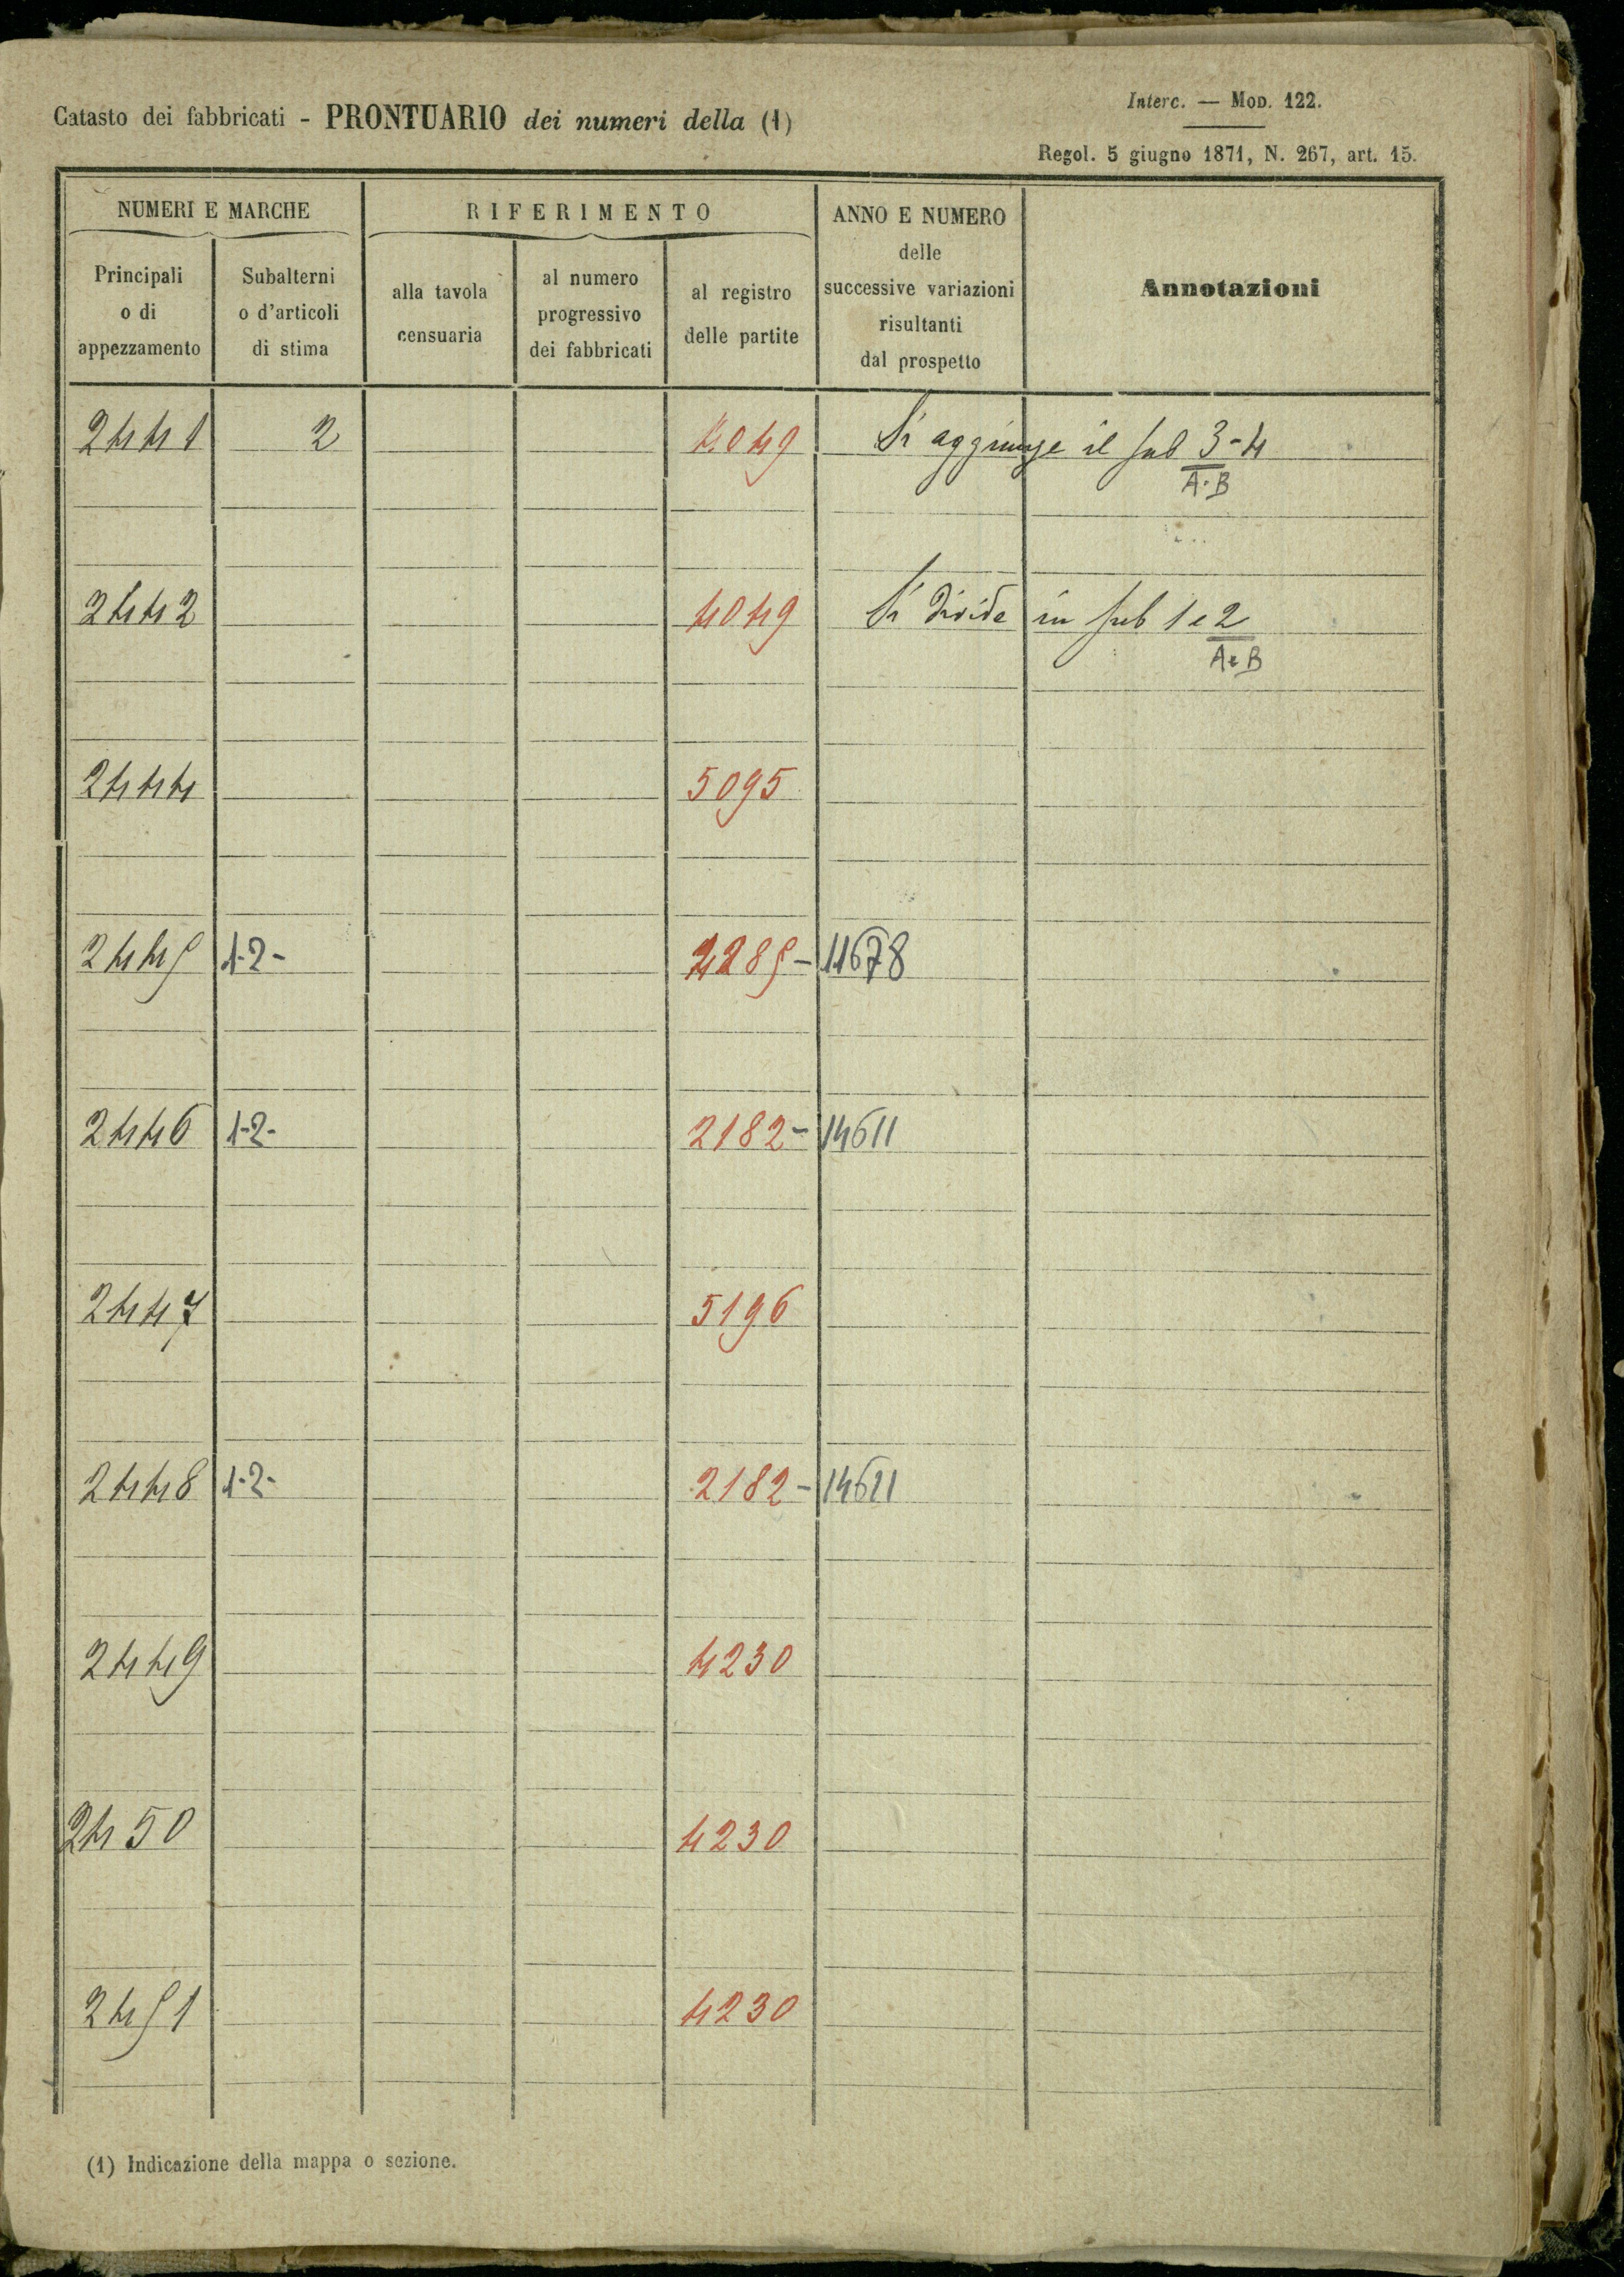 Catasto dei fabbricati - PRONTUARIO dei numeri della (1)
Interc. — Mod. 122.
Regol. 5 giugno 1871, N. 267, art. 15.
NUMERI E MARCHE
RIFERIMENTO
ANNO E NUMERO
delle
successive variazioni
risultanti
dal prospetto
Annotazioni
Principali
o di
appezzamento
Subalterni
o d'articoli
di stima
alla tavola
censuaria
al numero
progressivo
dei fabbricati
al registro
delle partite
2441 2 4049 Si aggiunge il sub 3-4
A-B
2442 4049 Si divide in sub 1 e 2
A e B
2444 5095
2445 1-2- 4285- 11678
2446 1-2- 2182- 14611
2447 5196
2448 1-2- 2182- 14611
2449 4230
2450 4230
2451 4230
(1) Indicazione della mappa o sezione.